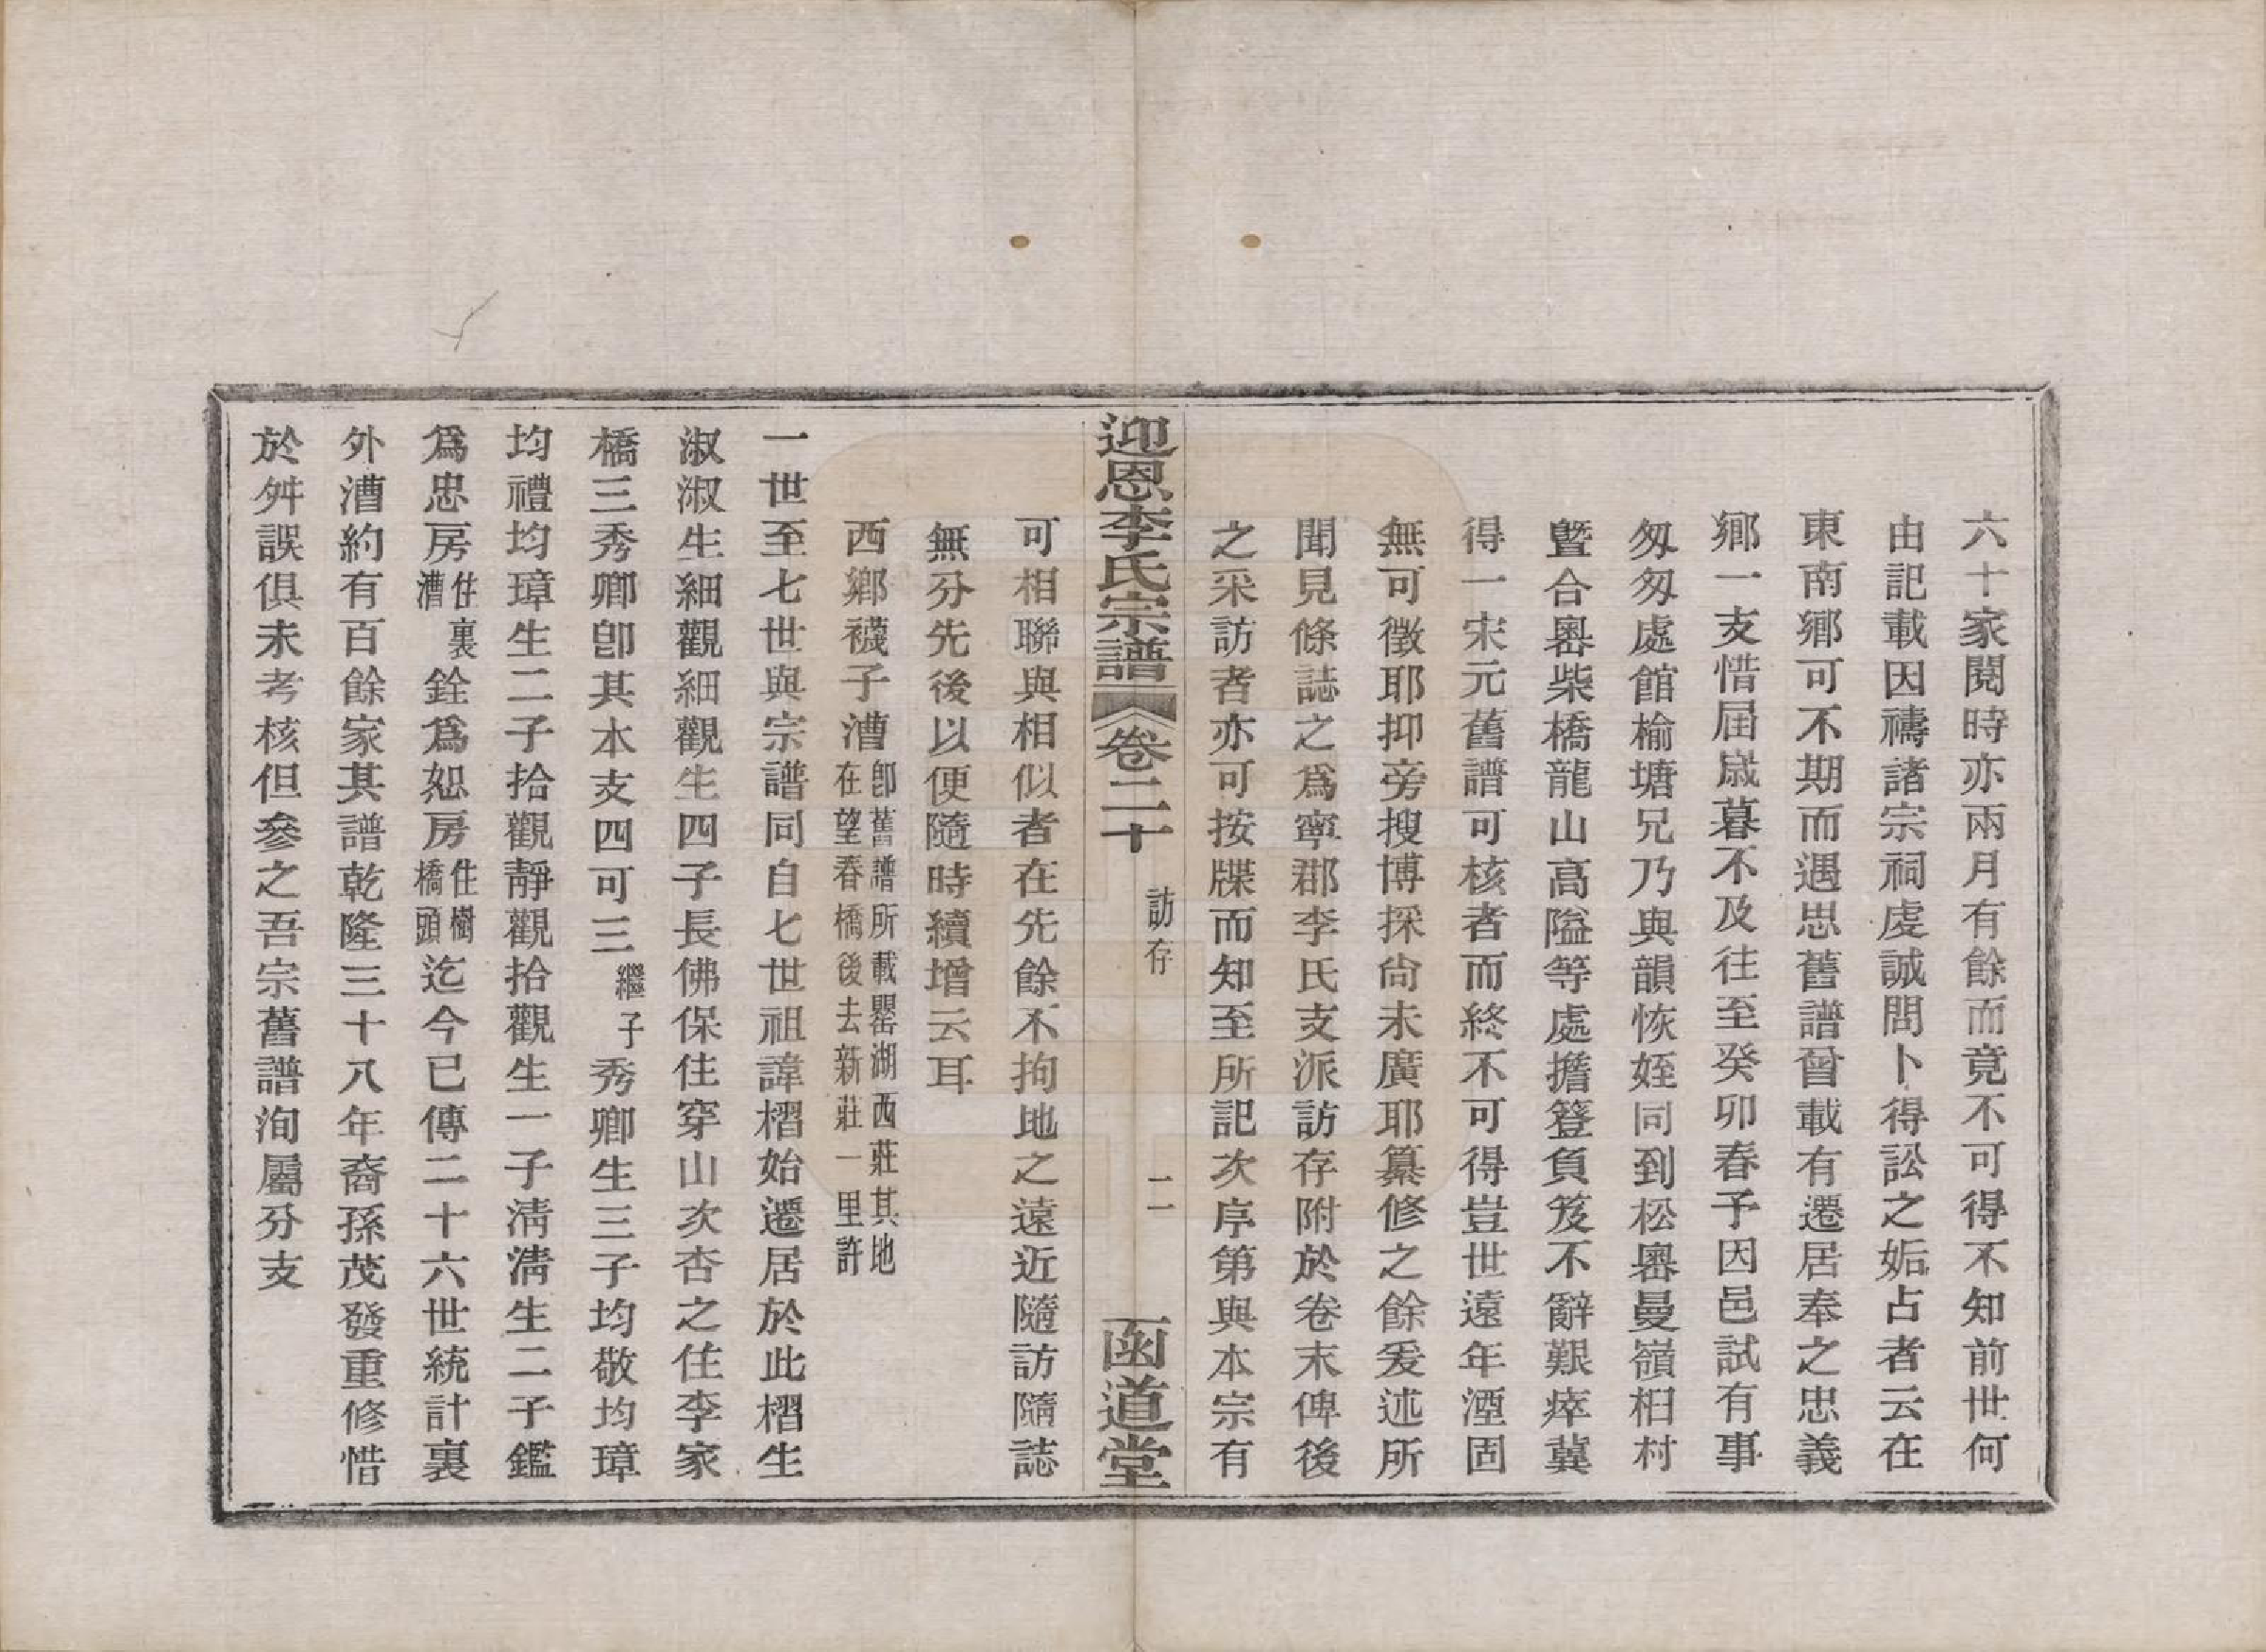 六十家閱時亦兩月有餘而竟不可得不知前世何
由記載因禱諸宗祠虔誠問卜得訟之姤占者云在
東南鄉可不期而遇思舊譜曾載有遷居奉之忠義
鄉一支惜屆歲暮不及往至癸卯春予因邑試有事
匆匆處館榆塘兄乃與韻恢姪同到松嶴曼嶺桕村
曁合嶴柴橋龍山高隘等處擔簦負笈不辭艱瘁冀
得一宋元舊譜可核者而終不可得豈世遠年湮固
無可徵耶抑旁搜博採尙未廣耶纂修之餘爰述所
聞見條誌之爲寧郡李氏支派訪存附於卷末俾後
之采訪者亦可按牒而知至所記次序第與本宗有
迎恩李氏宗譜 卷二十 訪存 二 函道堂
可相聯與相似者在先餘不拘地之遠近隨訪隨誌
無分先後以便隨時續增云耳
西鄉襪子漕卽舊譜所載罌湖西莊其地在望春橋後去新莊一里許
一世至七世與宗譜同自七世祖諱槢始遷居於此槢生
淑淑生細觀細觀生四子長佛保住穿山次杏之住李家
橋三秀卿卽其本支四可三繼子秀卿生三子均敬均璋
均禮均璋生二子拾觀靜觀拾觀生一子淸淸生二子鑑
爲忠房住裏漕銓爲恕房住樹橋頭迄今已傳二十六世統計裏
外漕約有百餘家其譜乾隆三十八年裔孫茂發重修惜
於舛誤俱未考核但參之吾宗舊譜洵屬分支